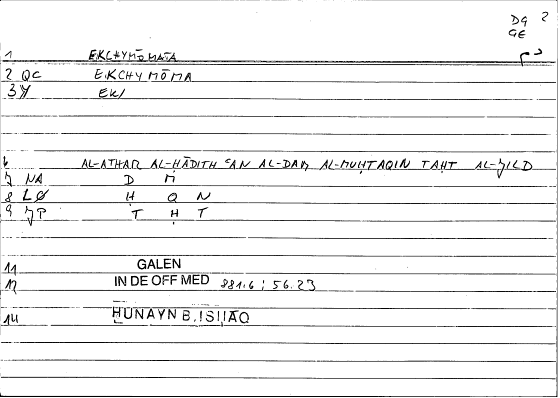 DG 2
GE
1 EKCHYMŌMATA
2 QC EKCHYMŌMA
3 EK/
6 AL-ATHAR AL-ḤĀDITH ʿAN AL-DAM AL-MUḤTAQIN TAḤT AL-JILD
7 NA D M
8 LØ Ḥ Q N
9 JP T Ḥ T
11 GALEN
12 IN DE OFF MED 881.6 ; 56.23
14 ḤUNAYN B. ISḤĀQ